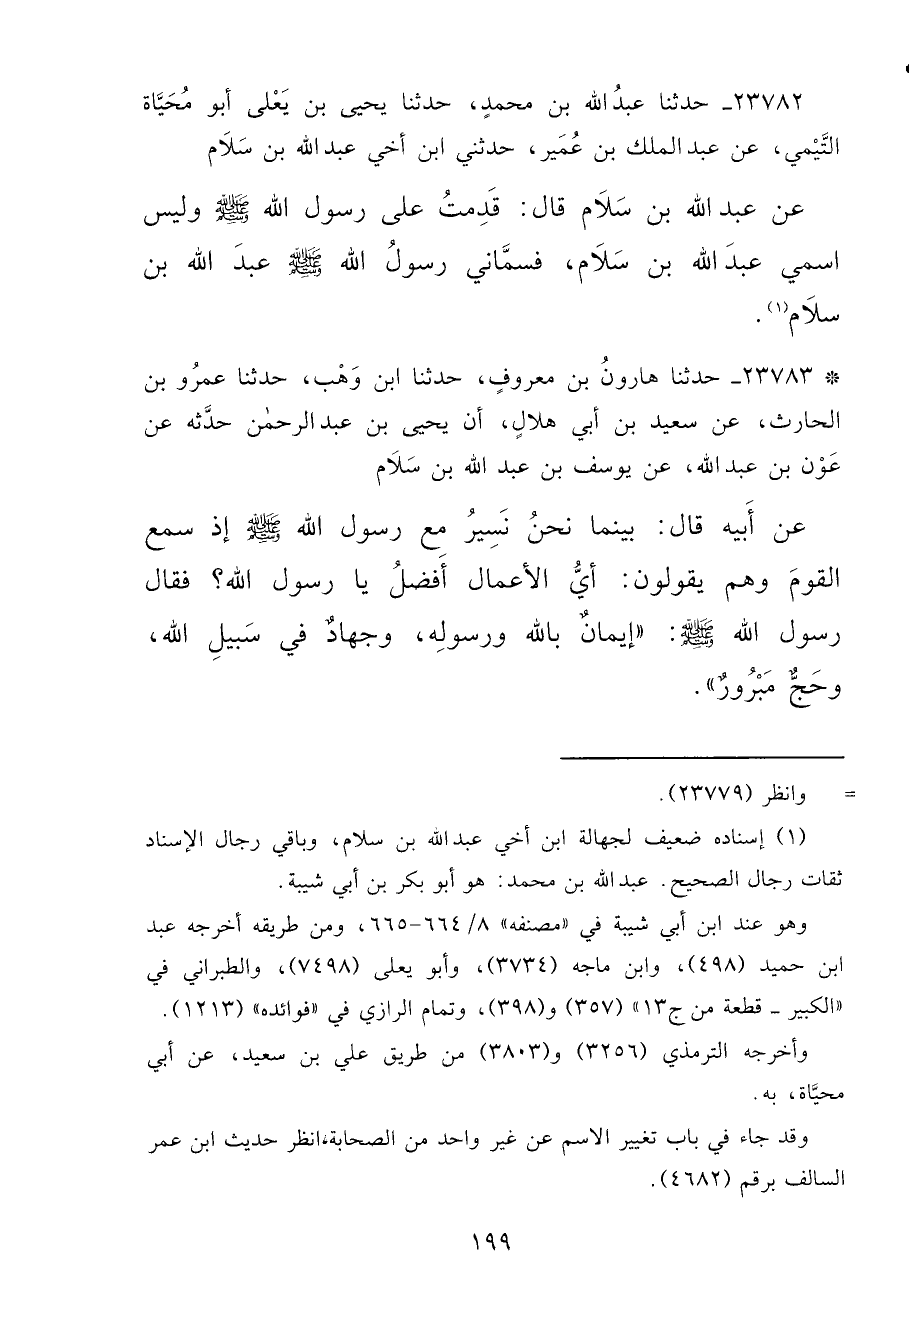 ٢٣٧٨٢ـ حدثنا عبدُالله بن محمدٍ، حدثنا يحيى بن يَعْلى أبو مُحَيَّاة
التَّيْمي، عن عبدالملك بن عُمَير، حدثني ابن أخي عبدالله بن سَلَام
عن عبدالله بن سَلَام قال: قَدِمتُ على رسول الله ﷺ وليس
اسمي عبدَالله بن سَلَام، فسمَّاني رسولُ الله ﷺ عبدَ الله بن
سلَام(١).
* ٢٣٧٨٣ـ حدثنا هارونُ بن معروفٍ، حدثنا ابن وَهْب، حدثنا عمرُو بن
الحارث، عن سعيد بن أبي هلالٍ، أن يحيى بن عبدالرحمٰن حدَّثه عن
عَوْن بن عبدالله، عن يوسف بن عبد الله بن سَلَام
عن أَبيه قال: بينما نحنُ نَسِيرُ مع رسول الله ﷺ إذ سمع
القومَ وهم يقولون: أيُّ الأعمال أَفضلُ يا رسول الله؟ فقال
رسول الله ﷺ: «إيمانٌ بالله ورسولِه، وجهادٌ في سَبيلِ الله،
وحَجٌّ مَبْرُورٌ».
= وانظر (٢٣٧٧٩).
(١) إسناده ضعيف لجهالة ابن أخي عبدالله بن سلام، وباقي رجال الإسناد
ثقات رجال الصحيح. عبدالله بن محمد: هو أبو بكر بن أبي شيبة.
وهو عند ابن أبي شيبة في «مصنفه» ٨/ ٦٦٤-٦٦٥، ومن طريقه أخرجه عبد
ابن حميد (٤٩٨)، وابن ماجه (٣٧٣٤)، وأبو يعلى (٧٤٩٨)، والطبراني في
«الكبير ـ قطعة من ج١٣» (٣٥٧) و(٣٩٨)، وتمام الرازي في «فوائده» (١٢١٣).
وأخرجه الترمذي (٣٢٥٦) و(٣٨٠٣) من طريق علي بن سعيد، عن أبي
محيَّاة، به.
وقد جاء في باب تغيير الاسم عن غير واحد من الصحابة،انظر حديث ابن عمر
السالف برقم (٤٦٨٢).
١٩٩